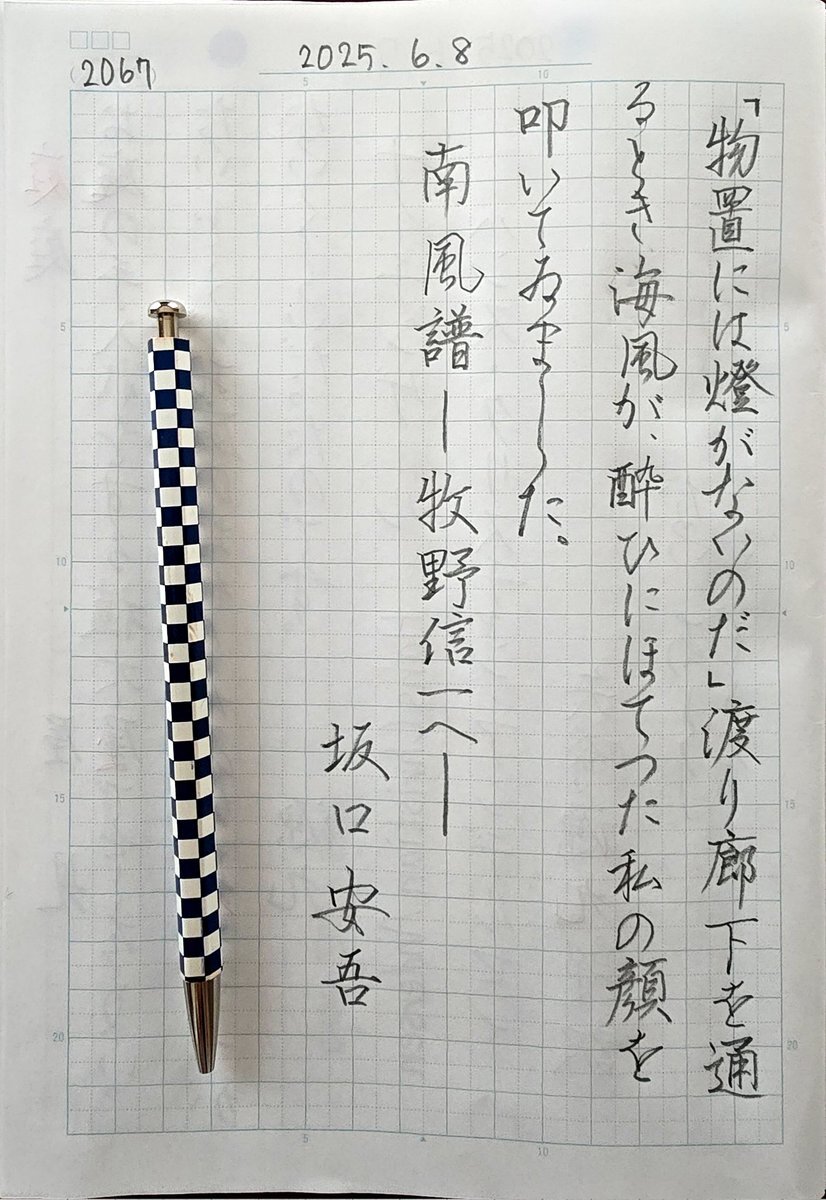 (2067)
2025.6.8
「物置には燈がないのだ」渡り廊下を通
るとき、海風が、酔ひにほてつた私の顔を
叩いてゐました。
南風譜―牧野信一へ―
坂口安吾
5
10
5
10
15
20
5
10
15
20
5
10